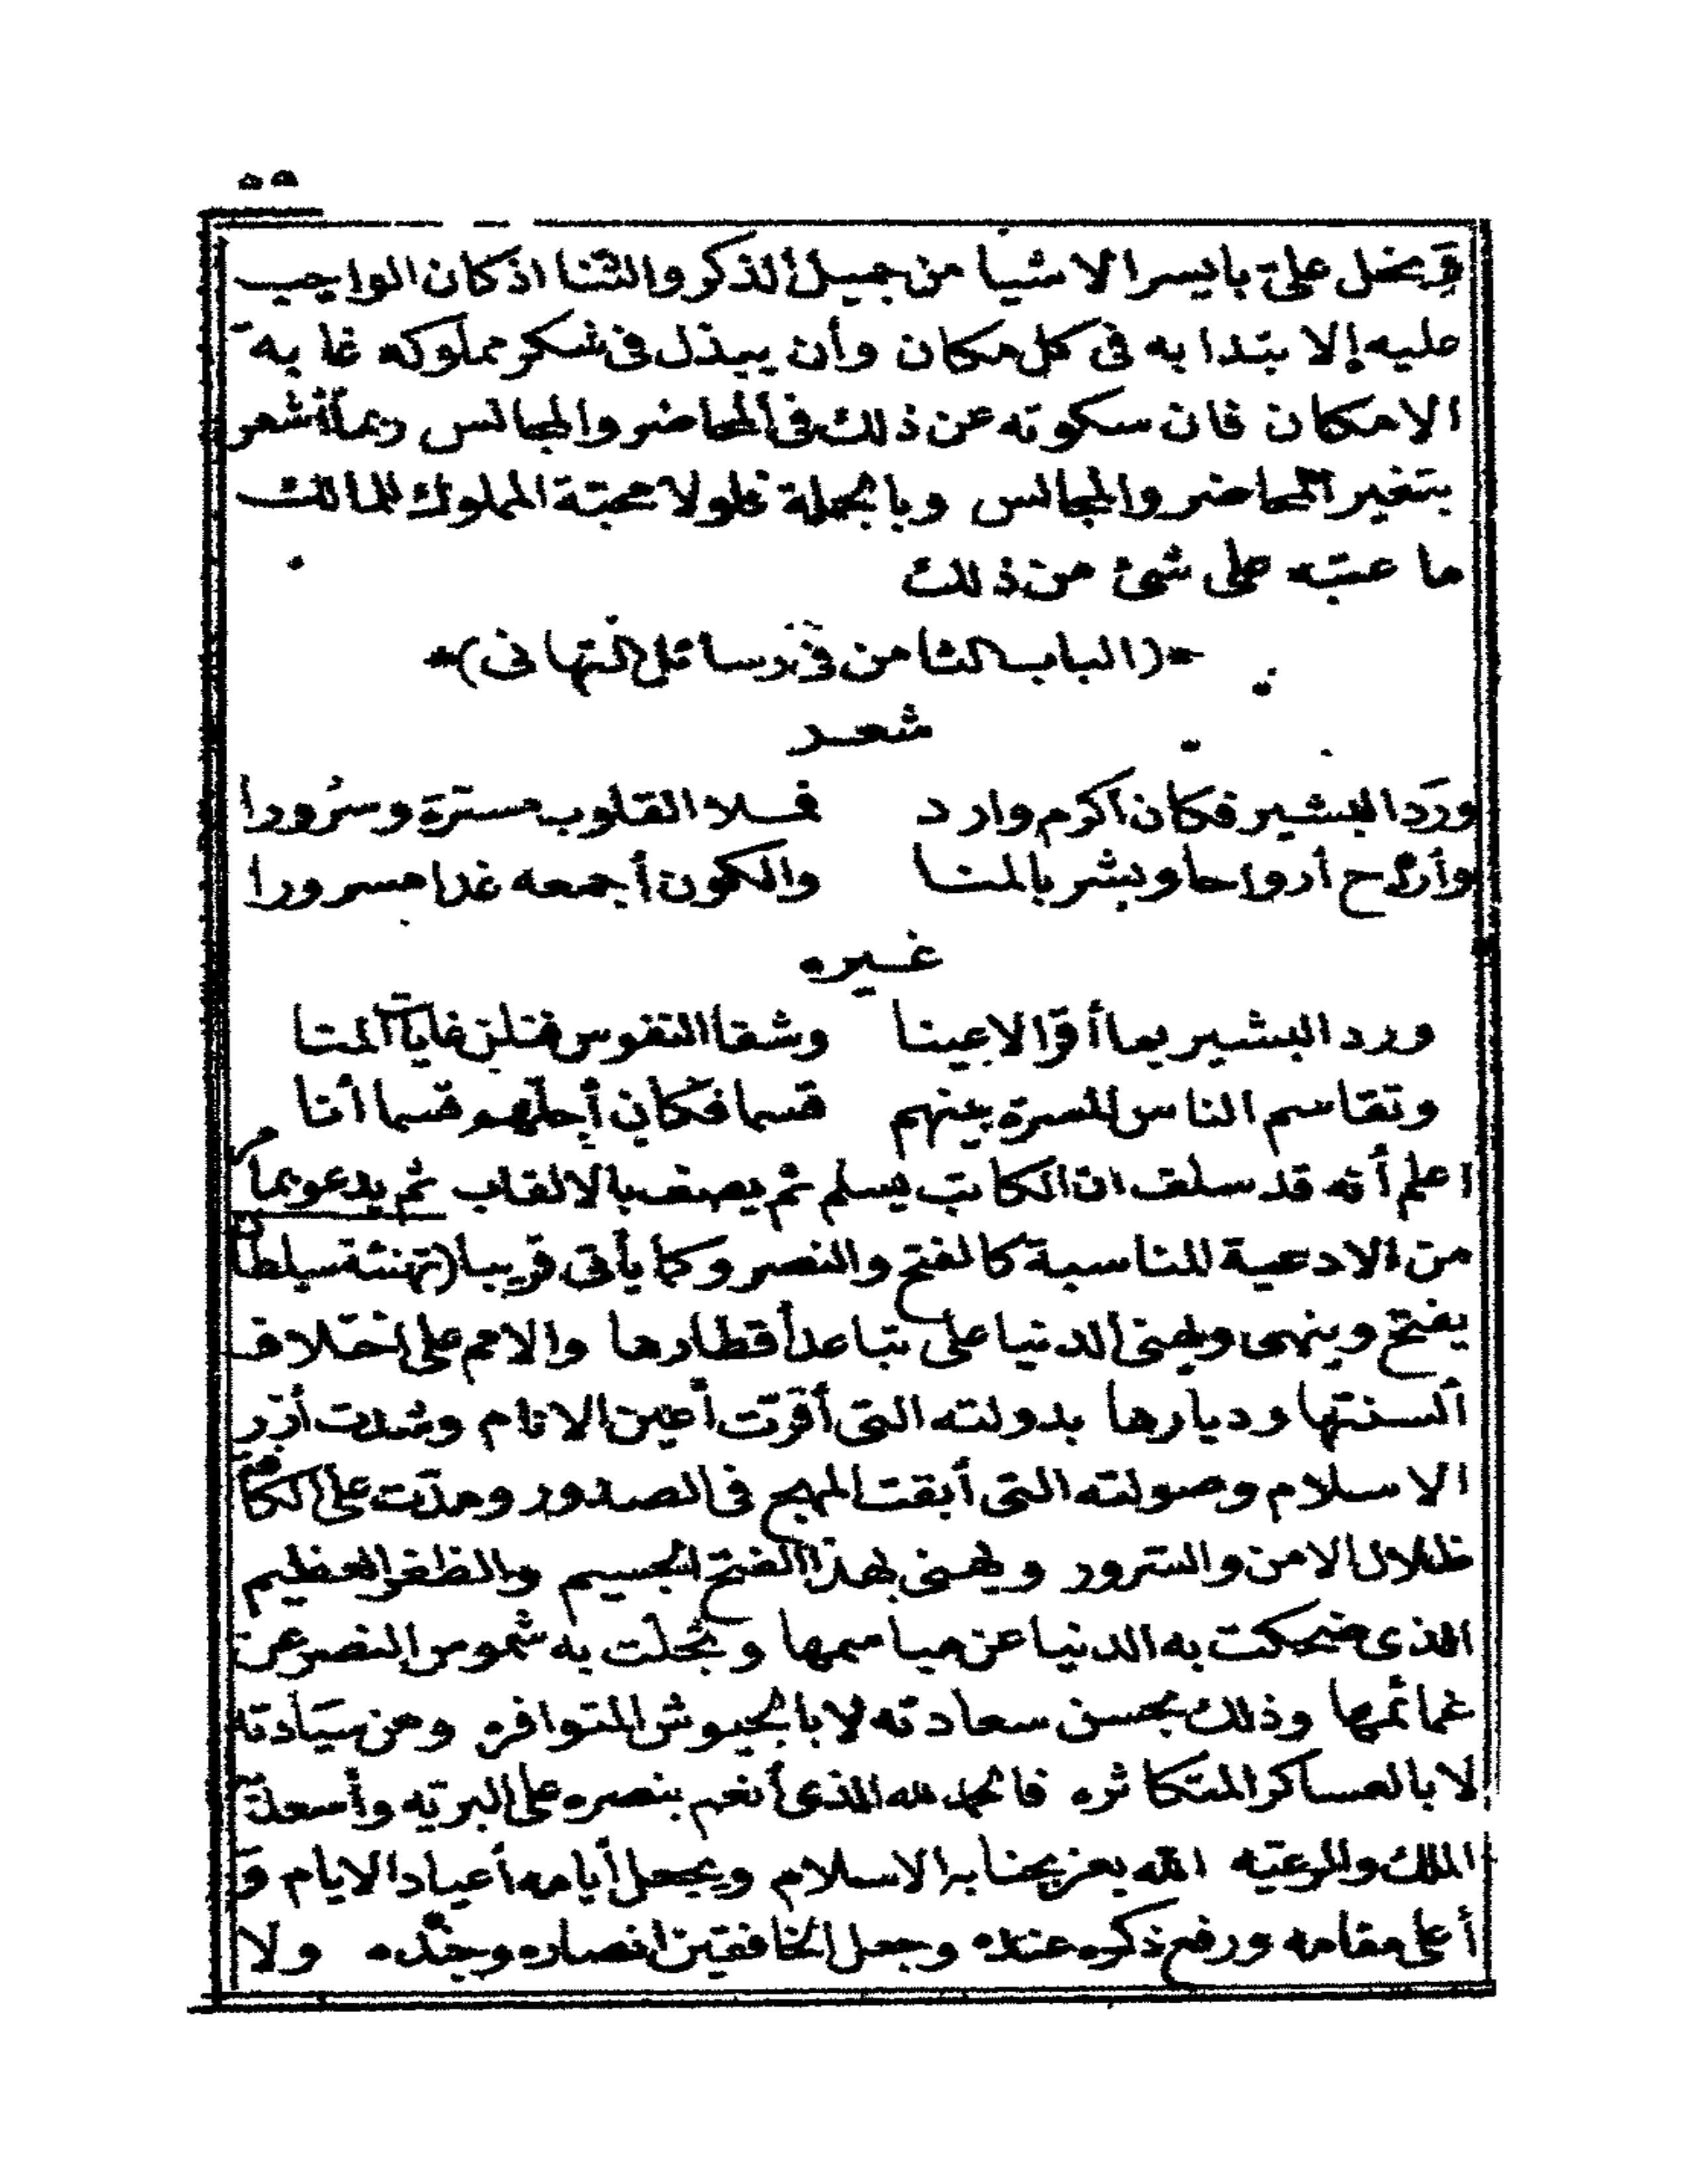 ٥٥
وبخل على بايسر الاشيا من جميل الذكر والثنا اذ كان الواجب
عليه إلا بتدا به فى كل مكان وأن يبذل فى شكر مملوكه غاية
الامكان فان سكوته عن ذلك فى المحاضر والمجالس ربما أشعر
بتغير المحاضر والمجالس وبالجملة فلولا محبّة المملوك للمالك
ما عتبه على شئ من ذلك
*(الباب الثامن فى رسائل التهانى)*
شعر
ورَد البشير فكان أكرم وارد فملا القلوب مسترة وسُرورا
وأراح أرواحا وبشر بالمنا والكون أجمعه غدا مسرورا
غيره
ورد البشير بما أقرّ الاعينا وشفا النفوس فنلن غايات المنا
وتقاسم الناس المسرة بينهم قسما فكان أجلّهم قسما أنا
اعلم أنه قد سلف ان الكاتب يسلم ثم يصف بالالقاب ثم يدعو بما مر
من الادعية المناسبة كالفتح والنصر وكما يأتى قريبا (تهنئة سلطان
يفتح وينهى ويهنى الدنيا على تباعد أقطارها والامم على اختلاف
ألسنتها وديارها بدولته التى أقرّت أعين الانام وشدت أزر
الاسلام وصولته التى أبقت المهج فى الصدور ومدّت على الكافة
ظلال الامن والسّرور ويهنى بهذا الفتح الجسيم والظفر العظيم
الذى ضحكت به الدنيا عن مباسمها وتجلّت به شموس النصر عن
غمائمها وذلك بحسن سعادته لا بالجيوش المتوافره ومن سيادته
لا بالعساكر المتكاثره فالحمد لله الذى أنعم بنصره على البريّه وأسعد
الملك والرعيّه الله يعز بجنابه الاسلام ويجعل أيامه أعياد الايام و
أعلى مقامه ورفع ذكره عنده وجعل الخافقين انصاره وجنده ولا